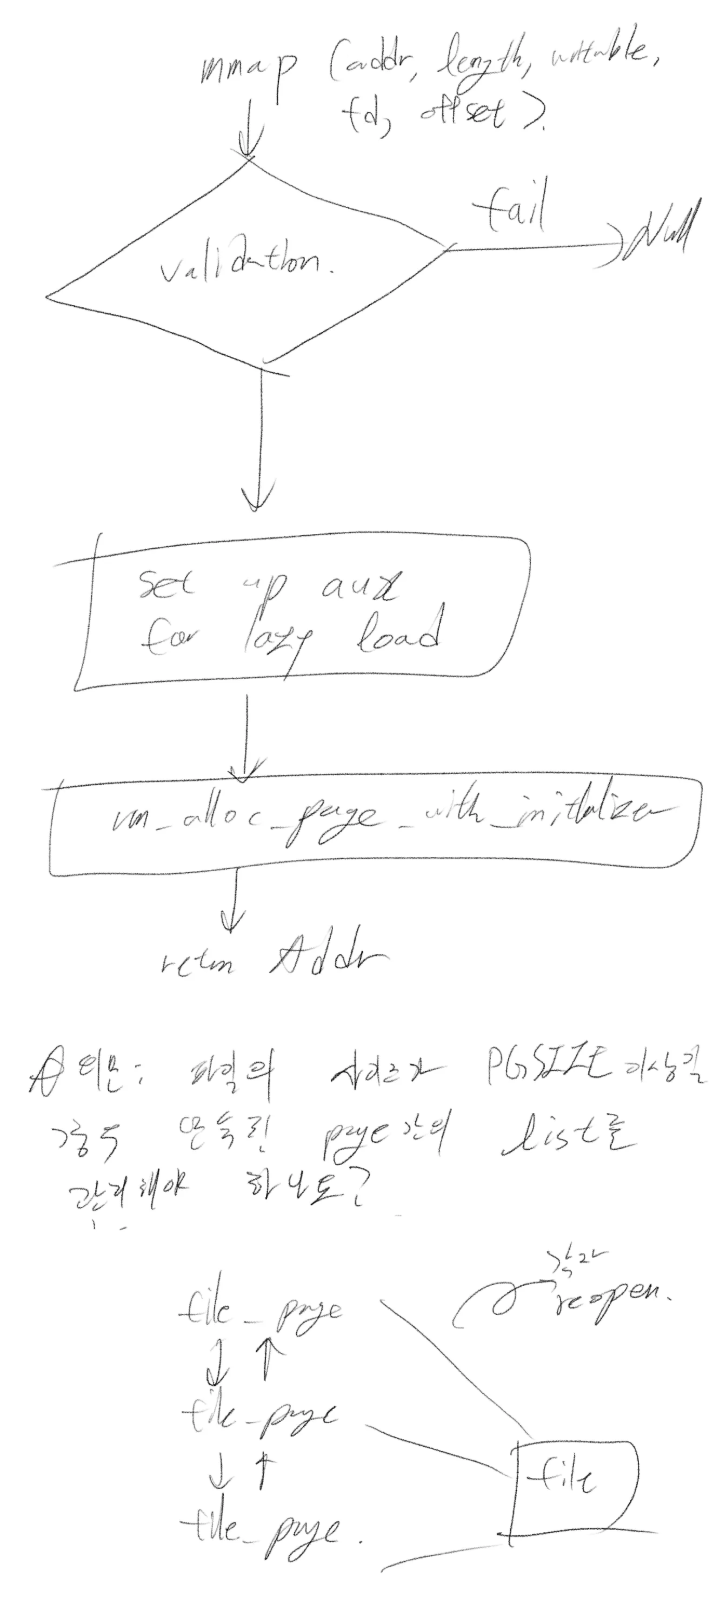 mmap (addr, length, writable,
fd, offset).
fail
Null
validation.
set up aux
for lazy load
vm_alloc_page_with_initializer
return Addr
의문: 파일의 사이즈가 PGSIZE 이상일
경우 연속된 page간의 list를
관리해야 하나요?
각각
reopen.
file_page
file_page
file
file_page.